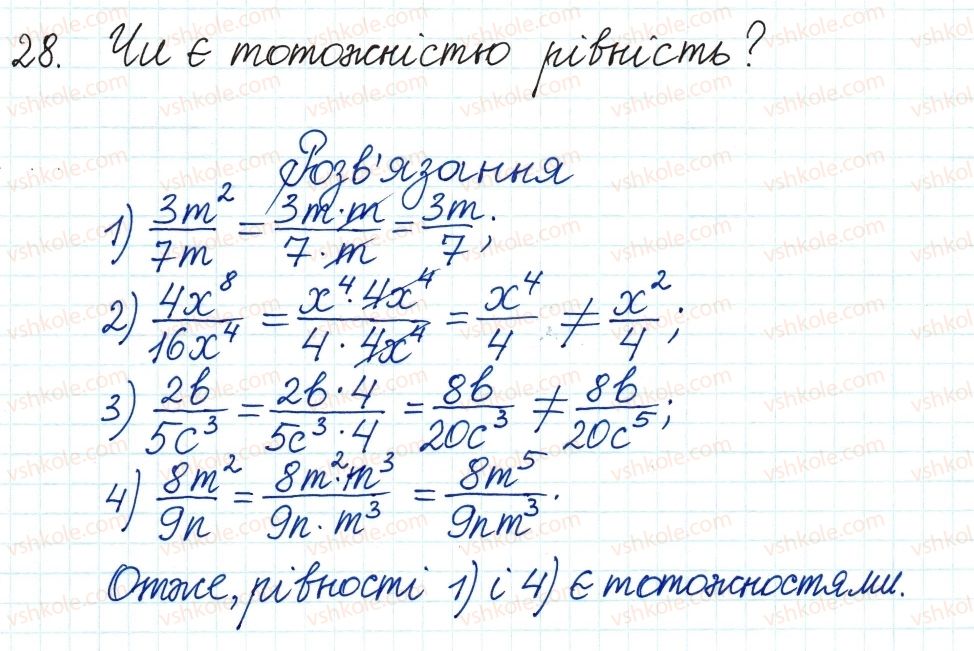 28. Чи є тотожністю рівність?
Розв'язання
1) 3m²/7m = 3m·m/7·m = 3m/7;
2) 4x⁸/16x⁴ = x⁴·4x⁴/4·4x⁴ = x⁴/4 ≠ x²/4;
3) 2b/5c³ = 2b·4/5c³·4 = 8b/20c³ ≠ 8b/20c⁵;
4) 8m²/9n = 8m²·m³/9n·m³ = 8m⁵/9nm³.
Отже, рівності 1) і 4) є тотожностями.